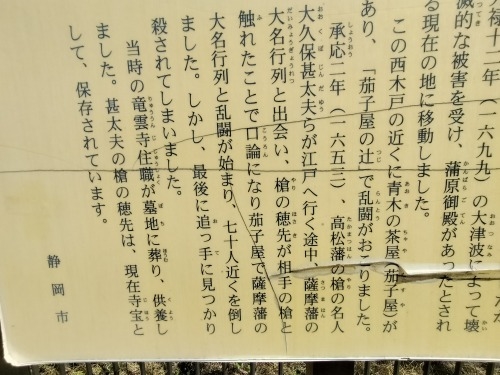 禄十二年（一六九九）の大津波によって壊
滅的な被害を受け、蒲原御殿があったとされ
る現在の地に移動しました。
この西木戸の近くに青木の茶屋（茄子屋）が
あり、「茄子屋の辻」で乱闘がおこりました。
承応二年（一六五三）、高松藩の槍の名人
大久保甚太夫らが江戸へ行く途中、薩摩藩の
大名行列と出会い、槍の穂先が相手の槍と
触れたことで口論になり茄子屋で薩摩藩の
大名行列と乱闘が始まり、七十人近くを倒し
ました。しかし、最後に追っ手に見つかり
殺されてしまいました。
当時の竜雲寺住職が墓地に葬り、供養し
ました。甚太夫の槍の穂先は、現在寺宝と
して、保存されています。
静岡市